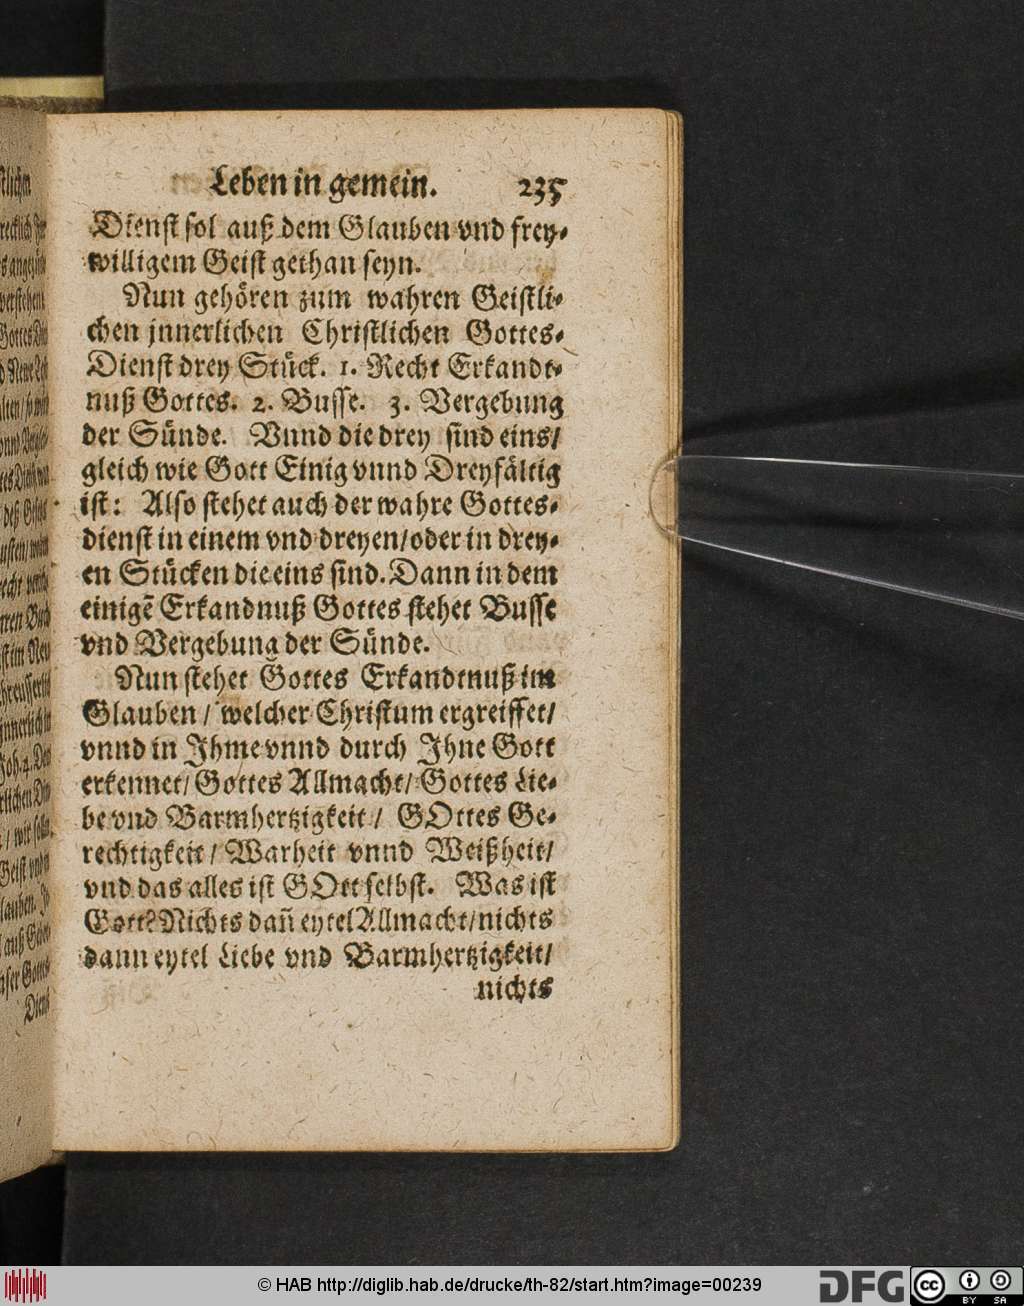 Leben in gemein. 235
Dienst sol auß dem Glauben vnd frey-
willigem Geist gethan seyn.
Nun gehören zum wahren Geistli-
chen jnnerlichen Christlichen Gottes-
Dienst drey Stück. 1. Recht Erkandt-
nuß Gottes. 2. Busse. 3. Vergebung
der Sünde. Vnnd die drey sind eins/
gleich wie Gott Einig vnnd Dreyfältig
ist: Also stehet auch der wahre Gottes-
dienst in einem vnd dreyen/oder in drey-
en Stücken die eins sind. Dann in dem
einigē Erkandnuß Gottes stehet Busse
vnd Vergebung der Sünde.
Nun stehet Gottes Erkandtnuß im
Glauben / welcher Christum ergreiffet/
vnnd in Ihme vnnd durch Ihne Gott
erkennet/ Gottes Allmacht/ Gottes Lie-
be vnd Barmhertzigkeit / GOttes Ge-
rechtigkeit / Warheit vnnd Weißheit/
vnd das alles ist GOtt selbst. Was ist
Gott? Nichts dañ eytel Allmacht/nichts
dann eytel Liebe vnd Barmhertzigkeit/
nichts
© HAB http://diglib.hab.de/drucke/th-82/start.htm?image=00239
DFG
cc
BY SA